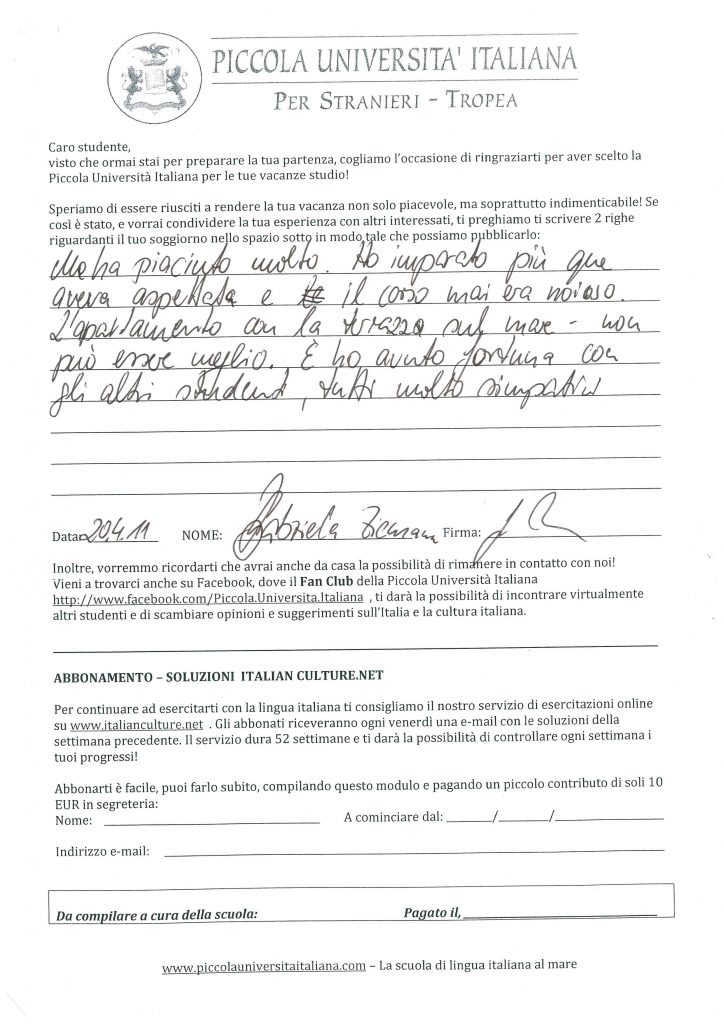 PICCOLA UNIVERSITA' ITALIANA
PER STRANIERI - TROPEA
Caro studente,
visto che ormai stai per preparare la tua partenza, cogliamo l'occasione di ringraziarti per aver scelto la
Piccola Università Italiana per le tue vacanze studio!
Speriamo di essere riusciti a rendere la tua vacanza non solo piacevole, ma soprattutto indimenticabile! Se
così è stato, e vorrai condividere la tua esperienza con altri interessati, ti preghiamo ti scrivere 2 righe
riguardanti il tuo soggiorno nello spazio sotto in modo tale che possiamo pubblicarlo:
Me ha piaciuto molto. Ho imparato più que
aveva aspettata e il corso mai era noioso.
L'apartamento con la terrazza sul mare - non
può esser meglio. E ho avuto fortuna con
gli altri studenti, tutti molto simpatici
Data: 20.4.11 NOME: Gabriela Firma:
Inoltre, vorremmo ricordarti che avrai anche da casa la possibilità di rimanere in contatto con noi!
Vieni a trovarci anche su Facebook, dove il Fan Club della Piccola Università Italiana
http://www.facebook.com/Piccola.Universita.Italiana , ti darà la possibilità di incontrare virtualmente
altri studenti e di scambiare opinioni e suggerimenti sull'Italia e la cultura italiana.
ABBONAMENTO – SOLUZIONI ITALIAN CULTURE.NET
Per continuare ad esercitarti con la lingua italiana ti consigliamo il nostro servizio di esercitazioni online
su www.italianculture.net . Gli abbonati riceveranno ogni venerdì una e-mail con le soluzioni della
settimana precedente. Il servizio dura 52 settimane e ti darà la possibilità di controllare ogni settimana i
tuoi progressi!
Abbonarti è facile, puoi farlo subito, compilando questo modulo e pagando un piccolo contributo di soli 10
EUR in segreteria:
Nome: A cominciare dal: / /
Indirizzo e-mail:
Da compilare a cura della scuola: Pagato il,
www.piccolauniversitaitaliana.com – La scuola di lingua italiana al mare